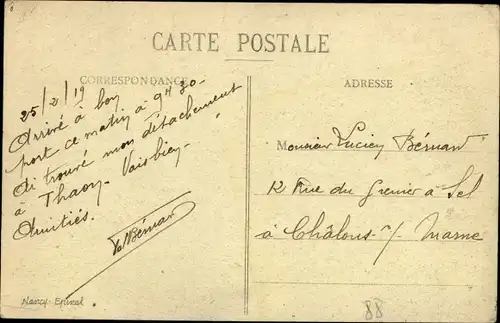 CARTE POSTALE
CORRESPONDANCE
ADRESSE
25/2/19
Arrivé à bon
port ce matin à 9h30-
Ai trouvé mon détachement
à Thaon. Vais bien.
Amitiés.
Bénard
Monsieur Lucien Bénard
12 Rue du Grenier à Sel
à Châlons s/ Marne
Nancy-Epinal
88